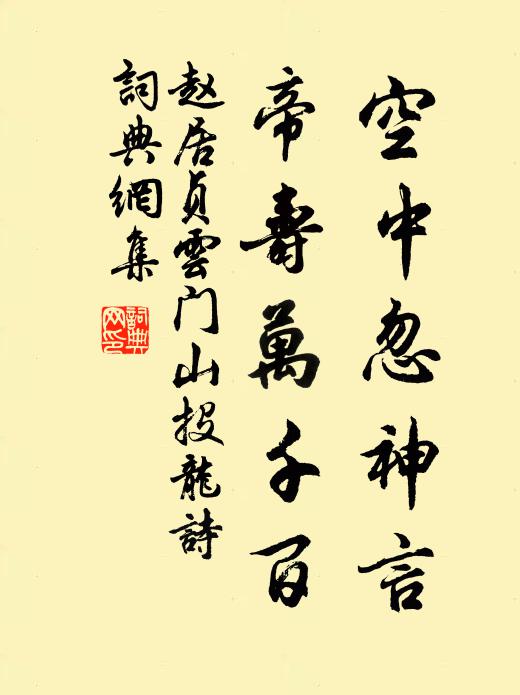 空中忽神言
帝壽萬千百
赵居貞雲门山投龍詩
詞典網集
詞典
网印